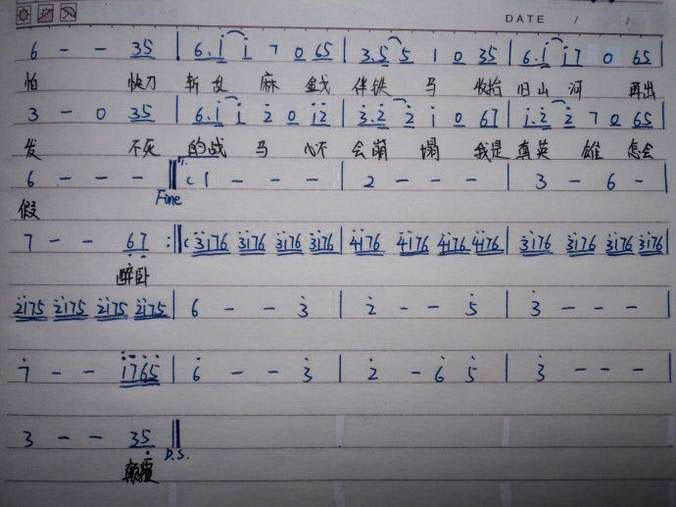 DATE / /
6 - - 35 | 6.i i 7 0 65 | 3.5 5 1 0 35 | 6.i i7 0 65
怕 快刀 斩乱 麻 金戈 伴铁 马 收拾 旧山 河 再出
3 - 0 35 | 6.i i 2 0 i2 | 3.2 2 i 0 67 | i.2 2 7 0 65
发 不死 的战 马 心不 会崩 塌 我是 真英 雄 怎会
6 - - - ‖ 1 - - - | 2 - - - | 3 - 6 - |
假 Fine
7 - - 67 :‖ 3i76 3i76 3i76 3i76 | 4i76 4i76 4i76 4i76 | 3i76 3i76 3i76 3i76 |
醉卧
2i75 2i75 2i75 2i75 | 6 - - 3 | 2 - - 5 | 3 - - - |
7 - - i765 | 6 - - 3 | 2 - 6 5 | 3 - - - |
3 - - 35 ‖
颠覆 D.S.